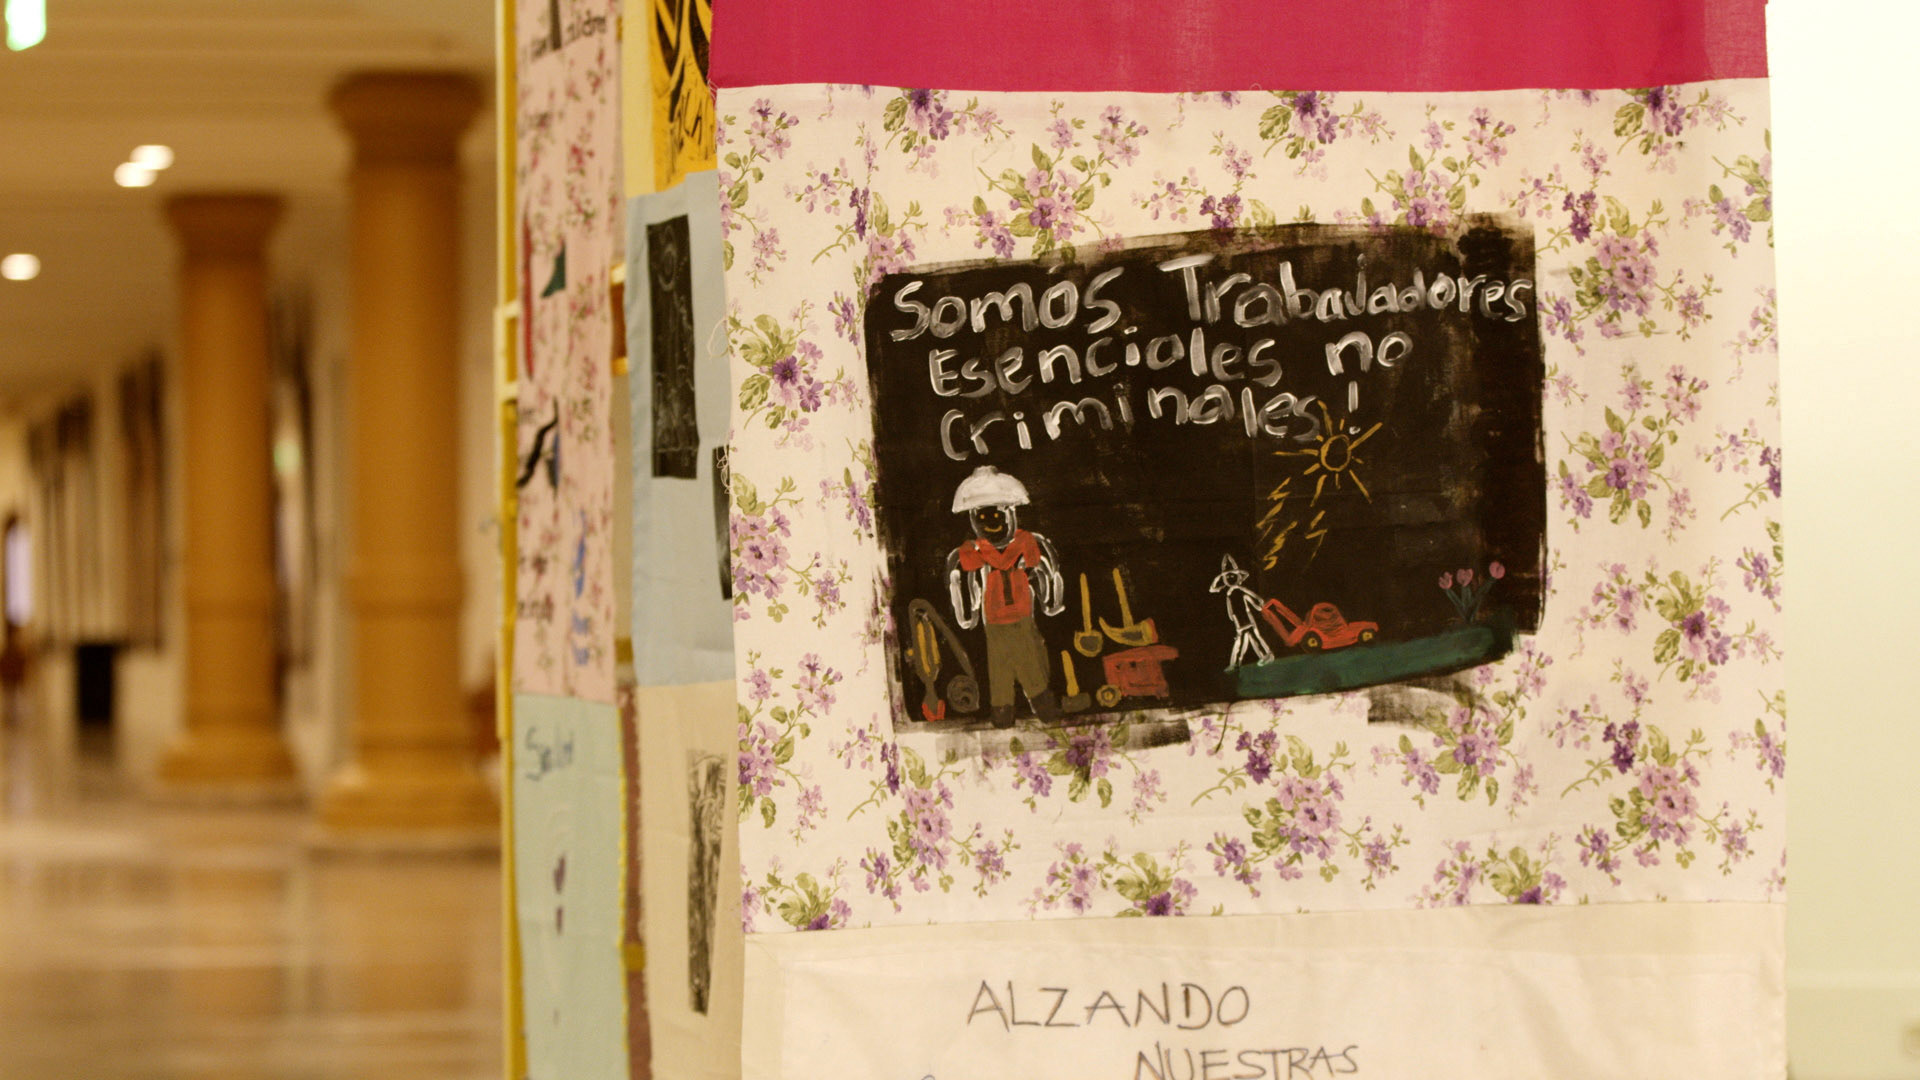 Somos Trabajadores
Esenciales no
Criminales!
ALZANDO
NUESTRAS